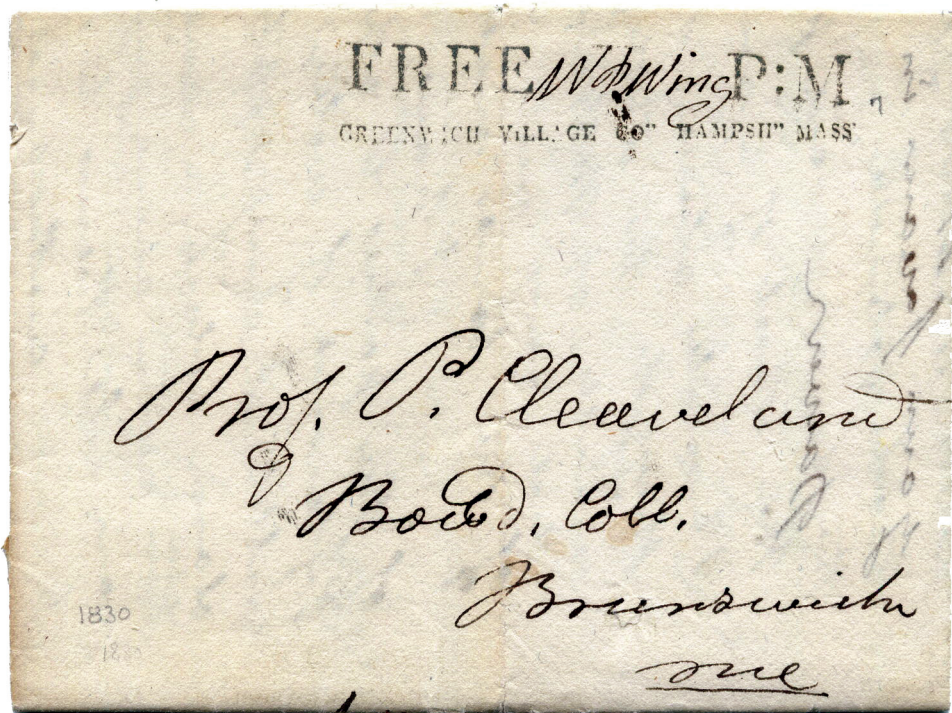 FREE W P Wing P:M.
GREENWICH VILLAGE CO" HAMPSH" MASS
Prof. P. Cleaveland
Bowd. Coll.
Brunswick
Me
1830